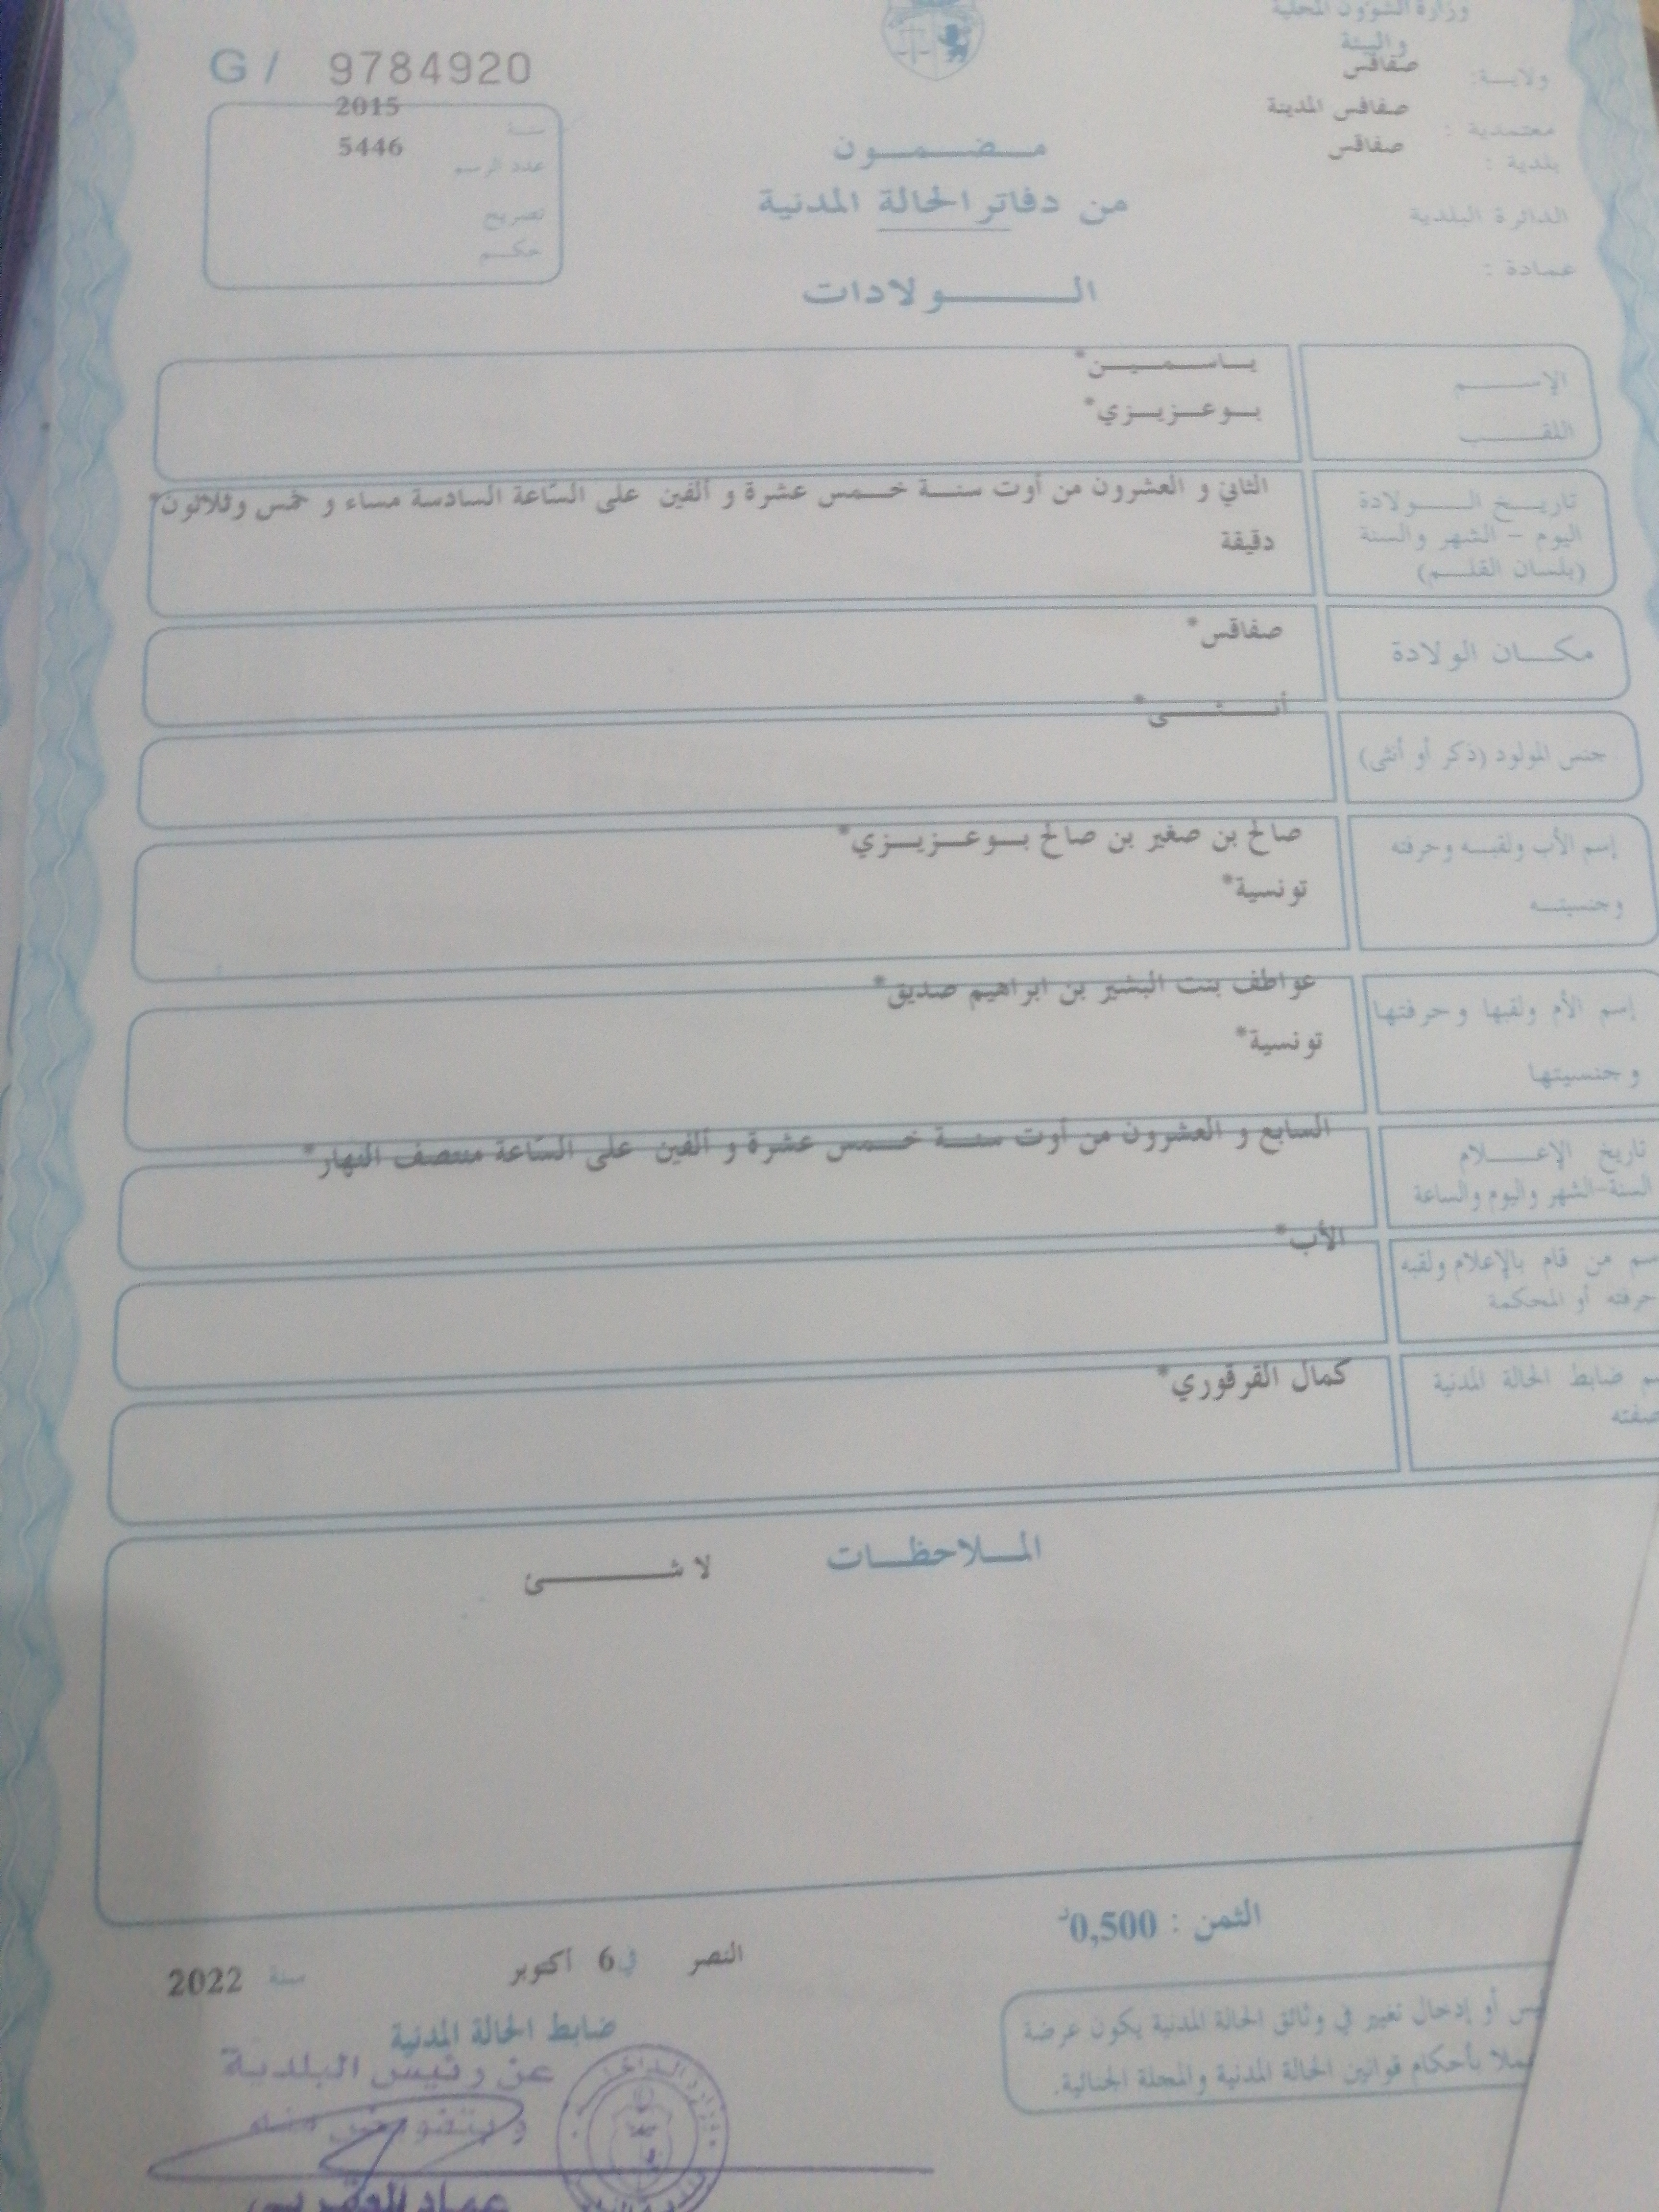 وزارة الشؤون المحلية
والبيئة
ولايــة: صفاقس
معتمدية : صفاقس المدينة
بلدية : صفاقس
الدائرة البلدية
عمادة :
G / 9784920
سنة 2015
عدد الرسم 5446
تصريح
حكم
مضمون
من دفاتر الحالة المدنية
الولادات
الإسم ياسمين*
اللقب بوعزيزي*
تاريخ الولادة
اليوم - الشهر والسنة
(بلسان القلم)
الثاني و العشرون من أوت سنة خمس عشرة و ألفين على الساعة السادسة مساء و خمس وثلاثون*
دقيقة
مكان الولادة صفاقس*
جنس المولود (ذكر أو أنثى) أنثى*
إسم الأب ولقبه وحرفته
وجنسيته
صالح بن صغير بن صالح بوعزيزي*
تونسية*
إسم الأم ولقبها وحرفتها
وجنسيتها
عواطف بنت البشير بن ابراهيم صديق*
تونسية*
تاريخ الإعلام
السنة-الشهر واليوم والساعة
السابع و العشرون من أوت سنة خمس عشرة و ألفين على الساعة منتصف النهار*
من قام بالإعلام ولقبه
أو المحكمة
الأب*
ضابط الحالة المدنية
كمال القرقوري*
الملاحظات لا شئ
الثمن : 0,500د
النصر في 6 أكتوبر سنة 2022
ضابط الحالة المدنية
عن رئيس البلدية
و بتفويض منه
أو إدخال تغيير في وثائق الحالة المدنية يكون عرضة
بأحكام قوانين الحالة المدنية والمجلة الجنائية.